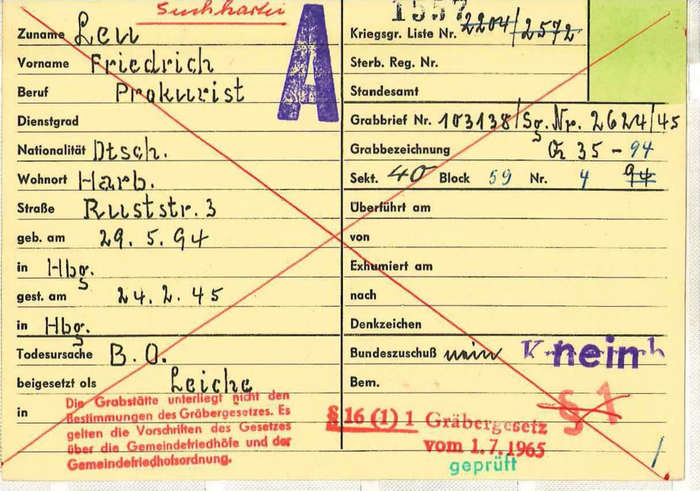 Suchkartei
A
1557
Zuname Leu
Kriegsgr. Liste Nr. 2204/2572
Vorname Friedrich
Sterb. Reg. Nr.
Beruf Prokurist
Standesamt
Dienstgrad
Grabbrief Nr. 103138/Sg. Np. 2624/45
Nationalität Dtsch.
Grabbezeichnung 35-94
Wohnort Harb.
Sekt. 40 Block 59 Nr. 4 94
Straße Ruststr. 3
Überführt am
geb. am 29. 5. 94
von
in Hbg.
Exhumiert am
gest. am 24. 2. 45
nach
in Hbg.
Denkzeichen
Todesursache B. O.
Bundeszuschuß nein nein
beigesetzt als Leiche
Bem.
in
Die Grabstätte unterliegt nicht den
Bestimmungen des Gräbergesetzes. Es
gelten die Vorschriften des Gesetzes
über die Gemeindefriedhöfe und der
Gemeindefriedhofsordnung.
§ 1
§ 16 (1) 1 Gräbergesetz
vom 1.7.1965
geprüft